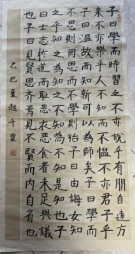 子曰學而時習之不亦說乎有朋自遠方
來不亦樂乎人不知而不慍不亦君子乎
子曰溫故而知新可以為師矣子曰學而
不思則罔思而不學則殆子曰由誨女知
之乎知之為知之不知為不知是知也子
曰士志於道而恥惡衣惡食者未足與議
也子曰見賢思齊焉見不賢而內自省也
乙巳夏趙千